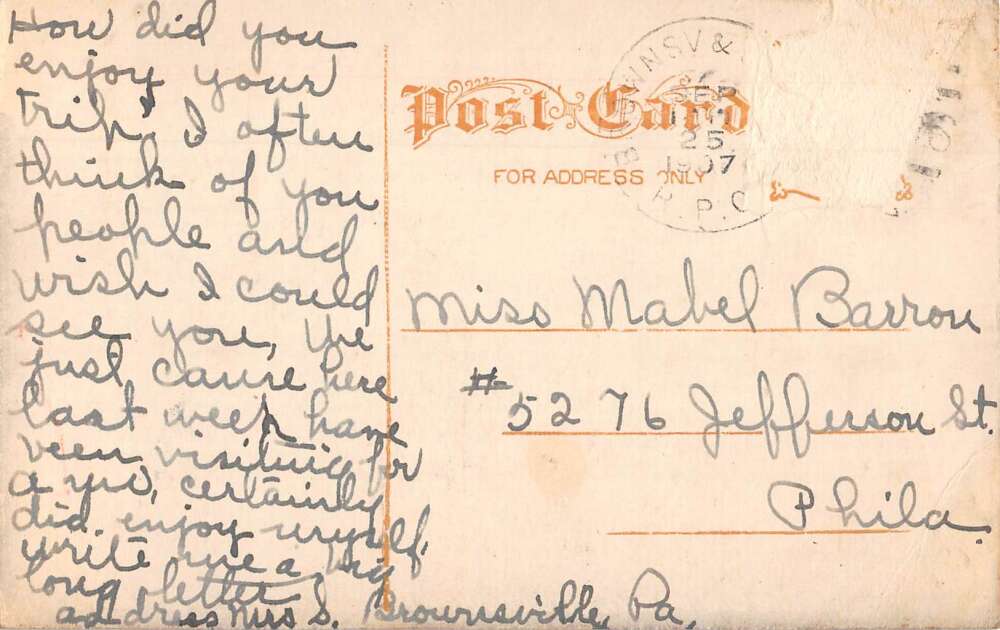 How did you
enjoy your
trip, I often
think of you
people and
wish I could
see you, We
just came here
last week have
been visiting for
a mo, certainly
did enjoy myself.
write me a big
long letter
address Mrs S. Brownsville, Pa.
Post Card
FOR ADDRESS ONLY
WNSV &
SEP
25
1907
R.P.O
Miss Mabel Barron
#5276 Jefferson St.
Phila